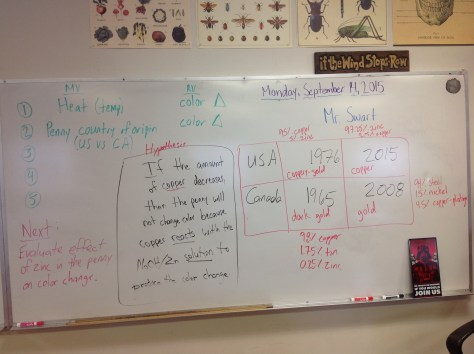 if the Wind Stops-Row
MV
RV
① Heat (temp)
color Δ
② Penny country of origin
(US vs CA)
color Δ
③
④
⑤
Next
Evaluate effect
of zinc in the penny
on color change.
Hypothesis
If the amount
of copper decreases,
then the penny will
not change color because
copper reacts with the
solution to
the color change
Monday, September 14, 2015
Mr. Swart
95% copper
5% zinc
97.5% zinc
2.5% copper
USA
1976
copper-gold
2015
copper
Canada
1965
dark gold
2008
gold
94% steel
1.5% nickel
4.5% copper plating
98% copper
1.75% tin
0.25% zinc
JOIN US